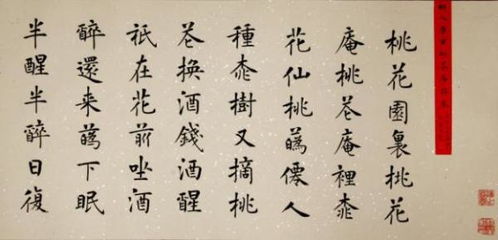 桃花園裏桃花
庵桃芲庵裡桃
花仙桃蘤僊人
種桃樹又摘桃
芲換酒錢酒醒
祇在花前坐酒
醉還来蘤下眠
半醒半醉日復